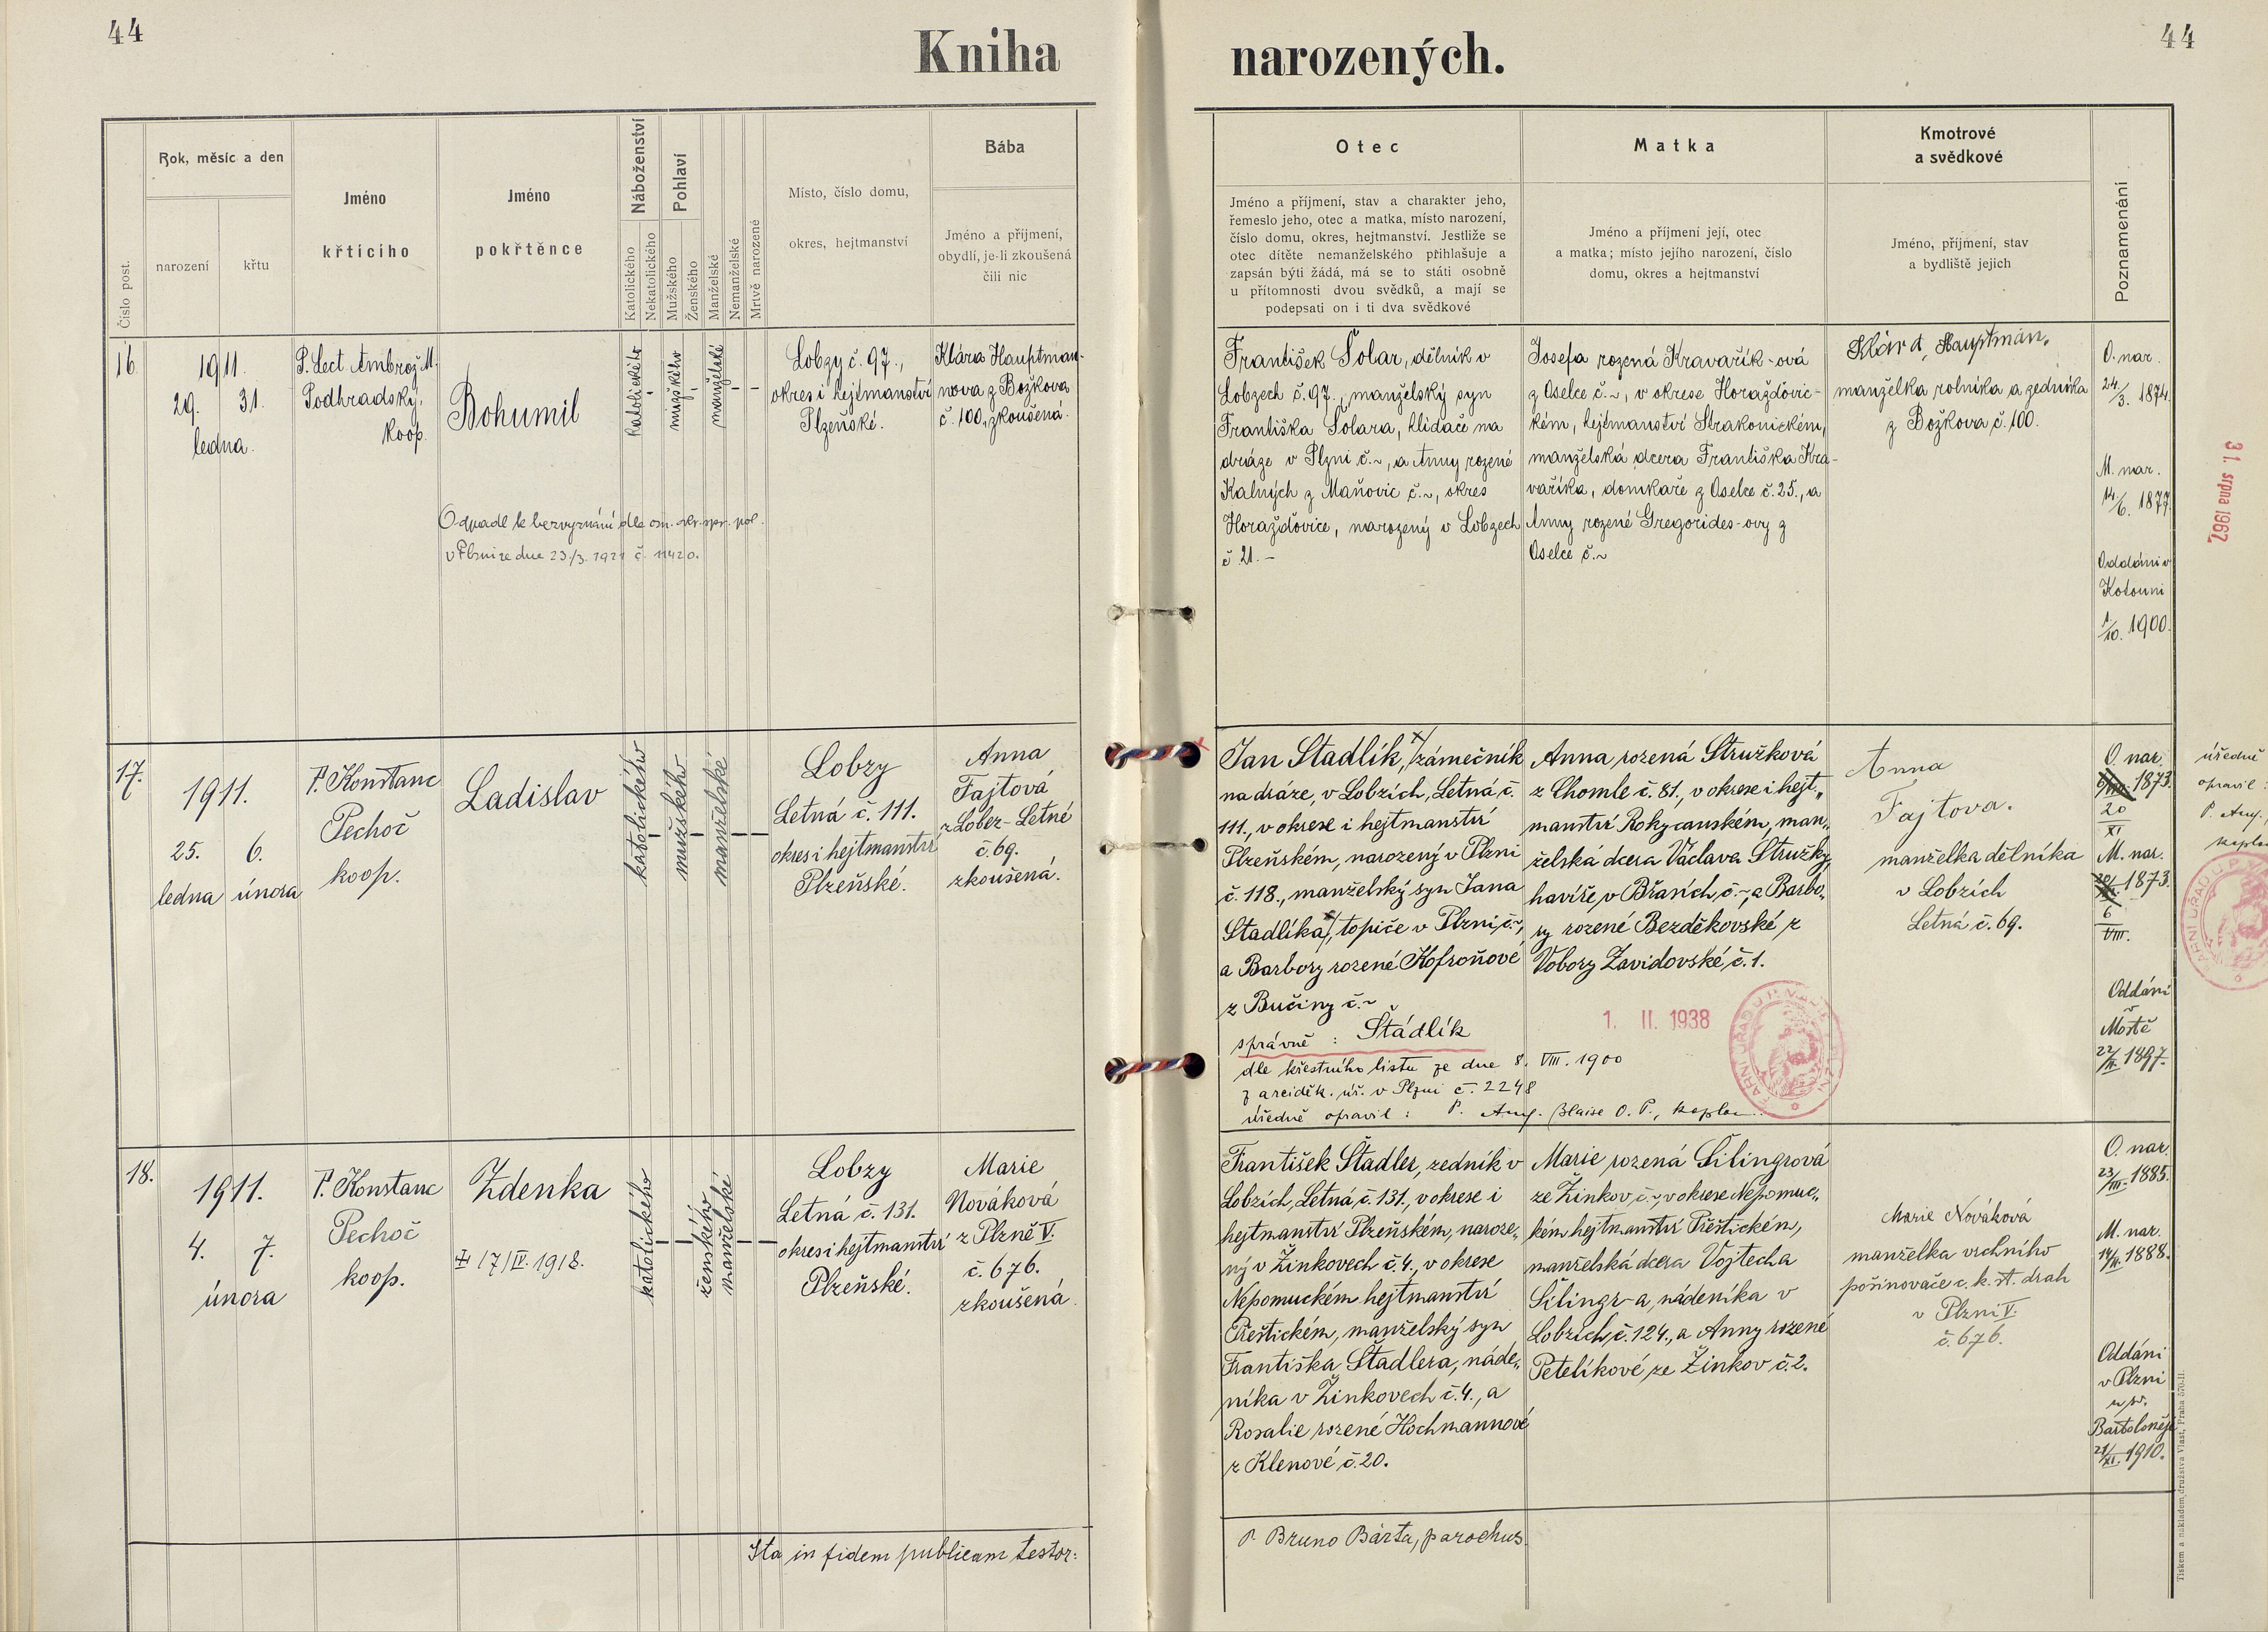 44
44
Kniha narozených.
Číslo post.
Rok, měsíc a den
narození
křtu
Jméno
křticího
Jméno
pokřtěnce
Náboženství
Katolického
Nekatolického
Pohlaví
Mužského
Ženského
Manželské
Nemanželské
Mrtvě narozené
Místo, číslo domu,
okres, hejtmanství
Bába
Jméno a příjmení,
obydlí, je-li zkoušená
čili nic
Otec
Jméno a příjmení, stav a charakter jeho,
řemeslo jeho, otec a matka, místo narození,
číslo domu, okres, hejtmanství. Jestliže se
otec dítěte nemanželského přihlašuje a
zapsán býti žádá, má se to státi osobně
u přítomnosti dvou svědků, a mají se
podepsati on i ti dva svědkové
Matka
Jméno a příjmení její, otec
a matka; místo jejího narození, číslo
domu, okres a hejtmanství
Kmotrové
a svědkové
Jméno, příjmení, stav
a bydliště jejich
Poznamenání
16
1911.
29. 31.
ledna.
P. Lect. Ambrož M.
Podhradský,
koop.
Bohumil
katolického
mužského
manželské
Lobzy č. 97.,
okres i hejtmanství
Plzeňské.
Klára Hauptman-
nova z Božkova
č. 100, zkoušená.
Odpadl k bezvyznání dle ozn. okr. spr. pol.
v Plzni ze dne 23/3. 1921 č. 11420.
František Šolar, dělník v
Lobzech č. 97., manželský syn
Františka Šolara, hlídače na
dráze v Plzni č. ~, a Anny rozené
Kalných z Maňovic č. ~, okres
Horažďovice, narozený v Lobzech
č. 21. –
Josefa rozená Kravařík-ová
z Oselce č. ~, v okrese Horažďovic-
kém, hejtmanství Strakonickém,
manželská dcera Františka Kra-
vaříka, domkaře z Oselce č. 25., a
Anny rozené Gregorides-ovy z
Oselce č. ~
Klára Hauptman,
manželka rolníka a zedníka
z Božkova č. 100.
O. nar.
24/3. 1874.
M. nar.
14/6. 1877.
Oddáni v
Kotouni
1/10. 1900.
31. srpna 1967
17.
1911.
25. 6.
ledna února
P. Konstanc
Pechoč
koop.
Ladislav
katolického
mužského
manželské
Lobzy
Letná č. 111.
okres i hejtmanství
Plzeňské.
Anna
Fajtová
z Lobez-Letné
č. 69.
zkoušená.
Jan Stadlík, zámečník
na dráze, v Lobzích, Letná, č.
111., v okrese i hejtmanství
Plzeňském, narozený v Plzni
č. 118., manželský syn Jana
Stadlíka, topiče v Plzni, č. ~,
a Barbory rozené Kofroňové
z Bučiny č. ~
správně: Štádlík
dle křestního listu ze dne 8. VIII. 1900
z arciděk. úř. v Plzni č. 2248
úředně opravil: P. Aug. Blaise O. P., kaplan.
Anna rozená Stružková
z Chomle č. 81., v okrese i hejt„
manství Rokycanském, man„
želská dcera Václava Stružky,
havíře, v Břasích, č. ~, a Barbo„
ry rozené Bezděkovské z
Vobory Zavidovské, č. 1.
1. II. 1938
Anna
Fajtova.
manželka dělníka
v Lobzích
Letná č. 69.
O. nar.
1873.
20
XI
M. nar.
1873.
6
VIII.
Oddáni
v
Mostě
1897.
úředně
opravil:
P. Aug.,
kaplan
18.
1911.
4. 7.
února
P. Konstanc
Pechoč
koop.
Zdenka
17/IV. 1918.
katolického
ženského
manželské
Lobzy
Letná č. 131.
okres i hejtmanství
Plzeňské.
Marie
Nováková
z Plzně V.
č. 676.
zkoušená.
František Štadler, zedník v
Lobzích, Letná č. 131., v okrese i
hejtmanství Plzeňském, naroze„
ný v Žinkovech č. 4., v okrese
Nepomuckém hejtmanství
Přeštickém, manželský syn
Františka Štadlera, náde„
níka v Žinkovech č. 4., a
Rosalie rozené Hochmannové
z Klenové č. 20.
Marie rozená Šilingrová
ze Žinkov, č. ~, v okrese Nepomuc„
kém hejtmanství Přeštickém,
manželská dcera Vojtecha
Šilingr-a, nádeníka v
Lobzích, č. 124., a Anny rozené
Petelíkové ze Žinkov č. 2.
Marie Nováková
manželka vrchního
pošinovače c. k. st. drah
v Plzni V.
č. 676.
O. nar.
23/III. 1885.
M. nar.
1888.
Oddáni
v Plzni
u sv.
Bartoloměje
21/XI. 1910.
Ita in fidem publicam testor:
P. Bruno Bárta, parochus.
Tiskem a nákladem družstva Vlast, Praha 570-II.